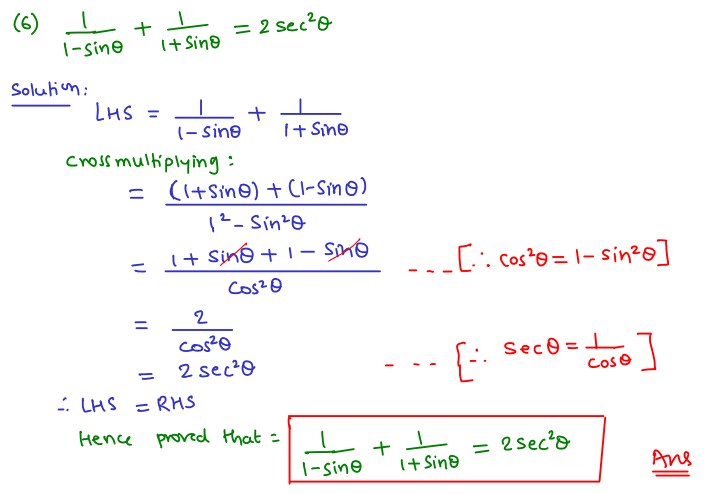 (6) 1/(1-sinθ) + 1/(1+sinθ) = 2 sec²θ
Solution:
LHS = 1/(1-sinθ) + 1/(1+sinθ)
Cross multiplying:
= ((1+sinθ) + (1-sinθ))/(1² - sin²θ)
= (1 + sinθ + 1 - sinθ)/cos²θ ---[∵ cos²θ = 1 - sin²θ]
= 2/cos²θ
= 2 sec²θ ---[∵ secθ = 1/cosθ]
∴ LHS = RHS
Hence proved that = 1/(1-sinθ) + 1/(1+sinθ) = 2 sec²θ Ans